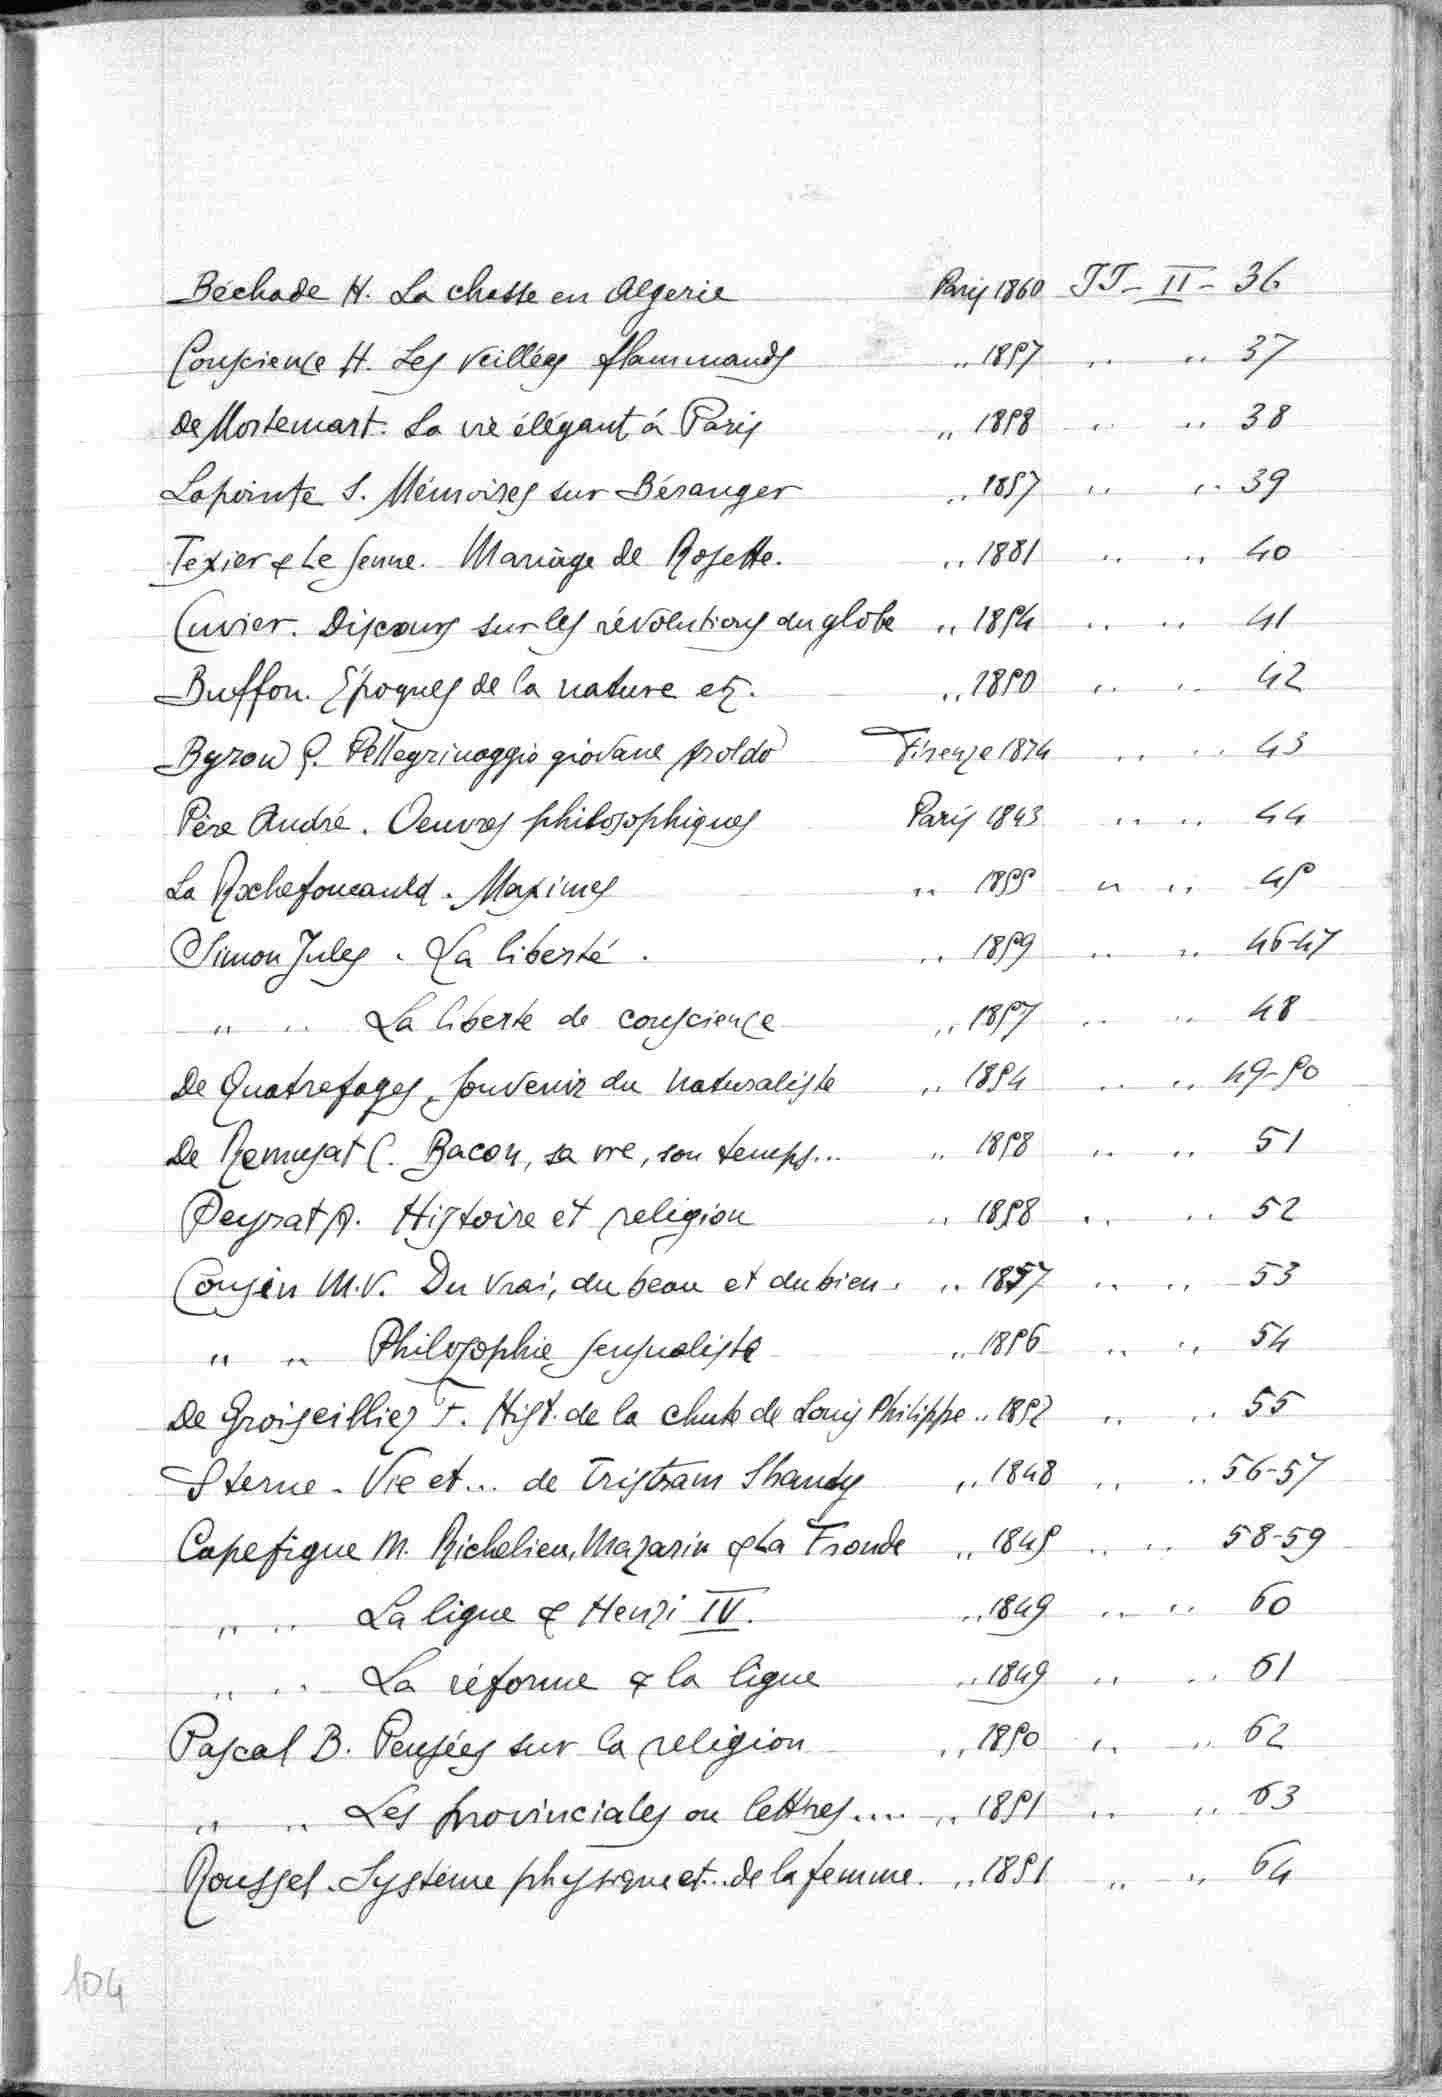 Béchade H. La chasse en Algerie Paris 1860 TT - II - 36
Conscience H. Les Veillées flammands „ 1857 „ „ 37
De Mortemart. La vie élégant à Paris „ 1858 „ „ 38
Lapointe S. Mémoires sur Béranger „ 1857 „ „ 39
Texier & Le Senne. Mariage de Rosette. „ 1881 „ „ 40
Cuvier. Discours sur les révolutions du globe „ 1854 „ „ 41
Buffon. Époques de la nature etc. „ 1850 „ „ 42
Byron G. Pellegrinaggio giovane Aroldo Firenze 1874 „ „ 43
Père André. Oeuvres philosophiques Paris 1843 „ „ 44
La Rochefoucauld. Maximes „ 1855 „ „ 45
Simon Jules. La liberté. „ 1859 „ „ 46-47
„ „ La liberte de conscience „ 1857 „ „ 48
De Quatrefages, Souvenir du naturaliste „ 1854 „ „ 49-50
De Remusat C. Bacon, sa vie, son temps... „ 1858 „ „ 51
Peyrat A. Histoire et religion „ 1858 „ „ 52
Cousin M.V. Du vrai, du beau et du bien. „ 1857 „ „ 53
„ „ Philosophie sensualiste „ 1856 „ „ 54
De Groiseilliez F. Hist. de la chute de Louis Philippe „ 1852 „ „ 55
Sterne - Vie et... de Tristram Shandy „ 1848 „ „ 56-57
Capefigue M. Richelieu, Mazarin & La Fronde „ 1845 „ „ 58-59
„ „ La ligue & Henri IV. „ 1849 „ „ 60
„ „ La réforme & la ligue „ 1849 „ „ 61
Pascal B. Pensées sur la religion „ 1850 „ „ 62
„ „ Les provinciales ou lettres.... „ 1851 „ „ 63
Roussel. Système physique et... de la femme. „ 1851 „ „ 64
104